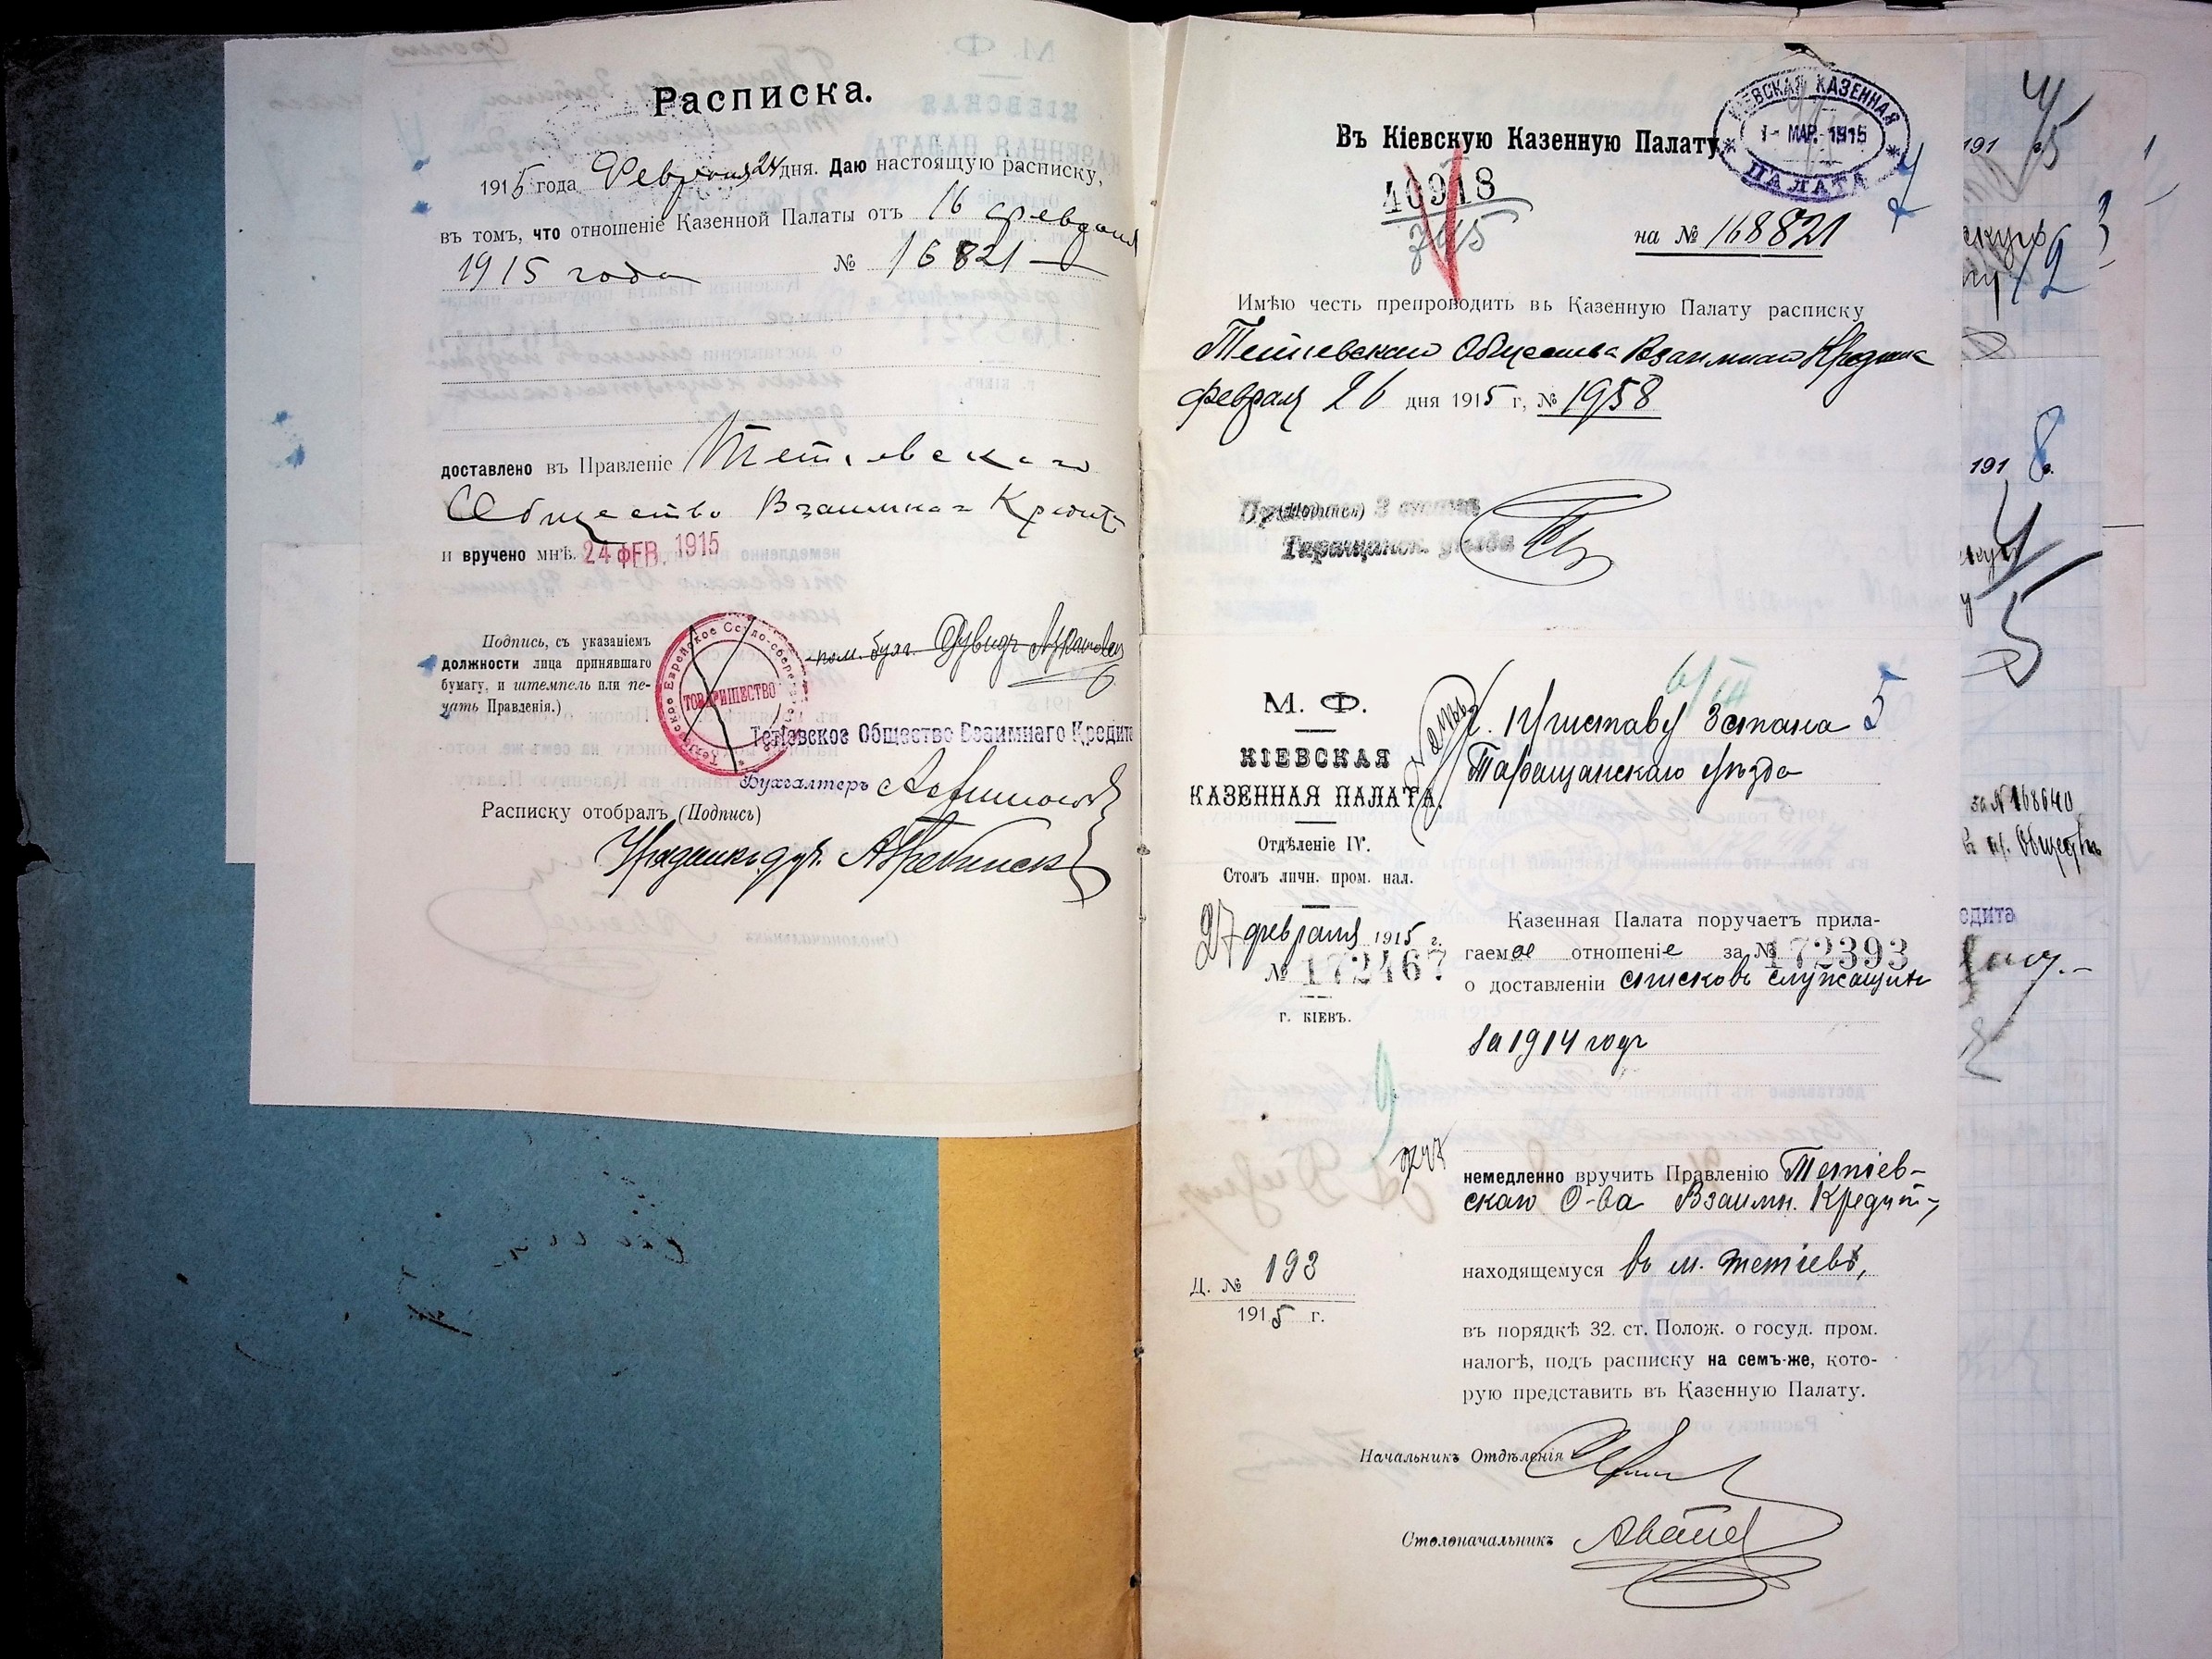 Расписка.
1915 года Февраля 24 дня. Даю настоящую расписку,
въ томъ, что отношеніе Казенной Палаты отъ 16 февраля
1915 года № 16821
доставлено въ Правленіе Тетіевскаго
Общество Взаимнаго Кредита
и вручено мнѣ. 24 ФЕВ. 1915
Подпись, съ указаніемъ
должности лица принявшаго
бумагу, и штемпель или пе-
чать Правленія.)
ТОВАРИЩЕСТВО
пом. бухг. Дувидъ
Тетіевское Общество Взаимнаго Кредита
Бухгалтеръ
Расписку отобралъ (Подпись)
Въ Кіевскую Казенную Палату
КІЕВСКАЯ КАЗЕННАЯ
1 - МАР. 1915
ПАЛАТА
40918
745
на № 168821
Имѣю честь препроводить въ Казенную Палату расписку
Тетіевскаго Общества Взаимнаго Кредита
февраля 26 дня 1915 г, № 1958
(Подпись) 3 стана
Таращанск. уѣзда
М. Ф.
КІЕВСКАЯ
КАЗЕННАЯ ПАЛАТА.
Отдѣленіе IV.
Столъ личн. пром. нал.
27 февраля 1915 г.
№ 172467
г. КІЕВЪ.
6/III
г. Приставу 3 стана 5
Таращанскаго уѣзда
Казенная Палата поручаетъ прила-
гаемое отношеніе за № 172393
о доставленіи списковъ служащихъ
за 1914 годъ
немедленно вручить Правленію Тетіев-
скаго О-ва Взаимн. Кредит.,
находящемуся въ м. Тетіевѣ,
Д. № 193
1915 г.
въ порядкѣ 32. ст. Полож. о госуд. пром.
налогѣ, подъ расписку на семъ-же, кото-
рую представить въ Казенную Палату.
Начальникъ Отдѣленія
Столоначальникъ
191
191 8
за № 168640
Общества
едита